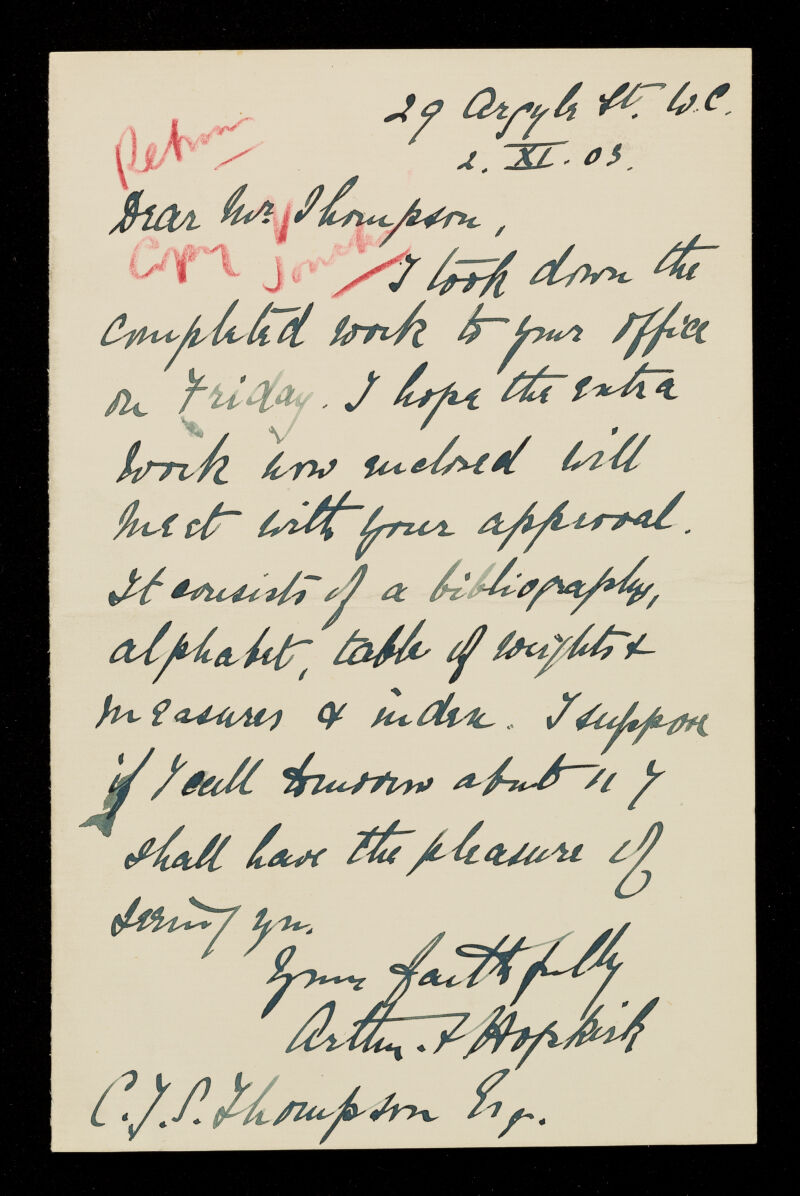 29 Argyle St. W.C.
2. XI. 03.
Return
Dear Mr. Thompson,
Copy
I took down the
completed work to your office
on Friday. I hope the extra
work now enclosed will
meet with your approval.
It consists of a bibliography,
alphabet, table of weights &
measures & index. I suppose
if I call tomorrow about 11 I
shall have the pleasure of
seeing you.
Yours faithfully
Arthur F Hopkirk
C.J.S. Thompson Esq.